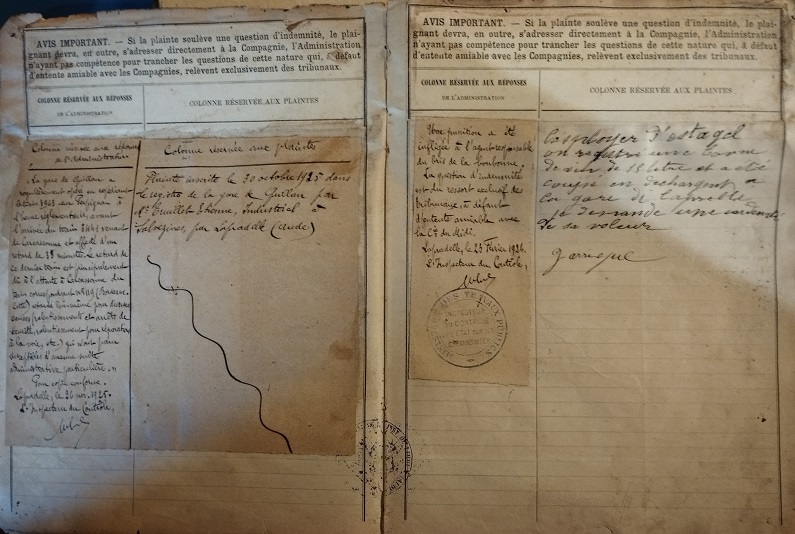 AVIS IMPORTANT. — Si la plainte soulève une question d'indemnité, le plai-
gnant devra, en outre, s'adresser directement à la Compagnie, l'Administration
n'ayant pas compétence pour trancher les questions de cette nature qui, à défaut
d'entente amiable avec les Compagnies, relèvent exclusivement des tribunaux.
COLONNE RÉSERVÉE AUX RÉPONSES
DE L'ADMINISTRATION
COLONNE RÉSERVÉE AUX PLAINTES
Colonne réservée aux réponses
de l'Administration
La gare de Quillan a
régulièrement
train 1903 sur Perpignan à
l'heure réglementaire, avant
l'arrivée du train venant
de Carcassonne et affecté d'un
retard de 38 minutes. Le retard de
ce dernier train est principalement
dû à l'attente à Carcassonne du
train correspondant n° 119 (Bordeaux-
Cette) retardé lui-même pour diverses
causes (ralentissement et arrêts de
ralentissement pour réparations
à la voie, etc.) qui ne sont pas
susceptibles d'aucune suite
administrative particulière. »
Pour copie conforme.
Lapradelle, le 26 nov. 1925.
L'Inspecteur du Contrôle,
Colonne réservée aux plaintes
Plainte inscrite le 30 octobre 1925 dans
le registre de la gare de Quillan par
Mr Etienne, Industriel à
Salvezines, par Lapradelle (Aude)
AVIS IMPORTANT. — Si la plainte soulève une question d'indemnité, le plai-
gnant devra, en outre, s'adresser directement à la Compagnie, l'Administration
n'ayant pas compétence pour trancher les questions de cette nature qui, à défaut
d'entente amiable avec les Compagnies, relèvent exclusivement des tribunaux.
COLONNE RÉSERVÉE AUX RÉPONSES
DE L'ADMINISTRATION
COLONNE RÉSERVÉE AUX PLAINTES
Une punition a été
infligée à l'agent responsable
du bris de la bonbonne.
La question d'indemnité
est du ressort exclusif des
tribunaux, à défaut
d'entente amiable avec
la Cie du Midi.
Lapradelle, le 23 Février 1926.
L'Inspecteur du Contrôle,
MINISTÈRE DES TRAVAUX PUBLICS
d'Estagel
une
de vin de 15 litre et a été
en dechargent a
la gare de
je demande une
de sa valeur